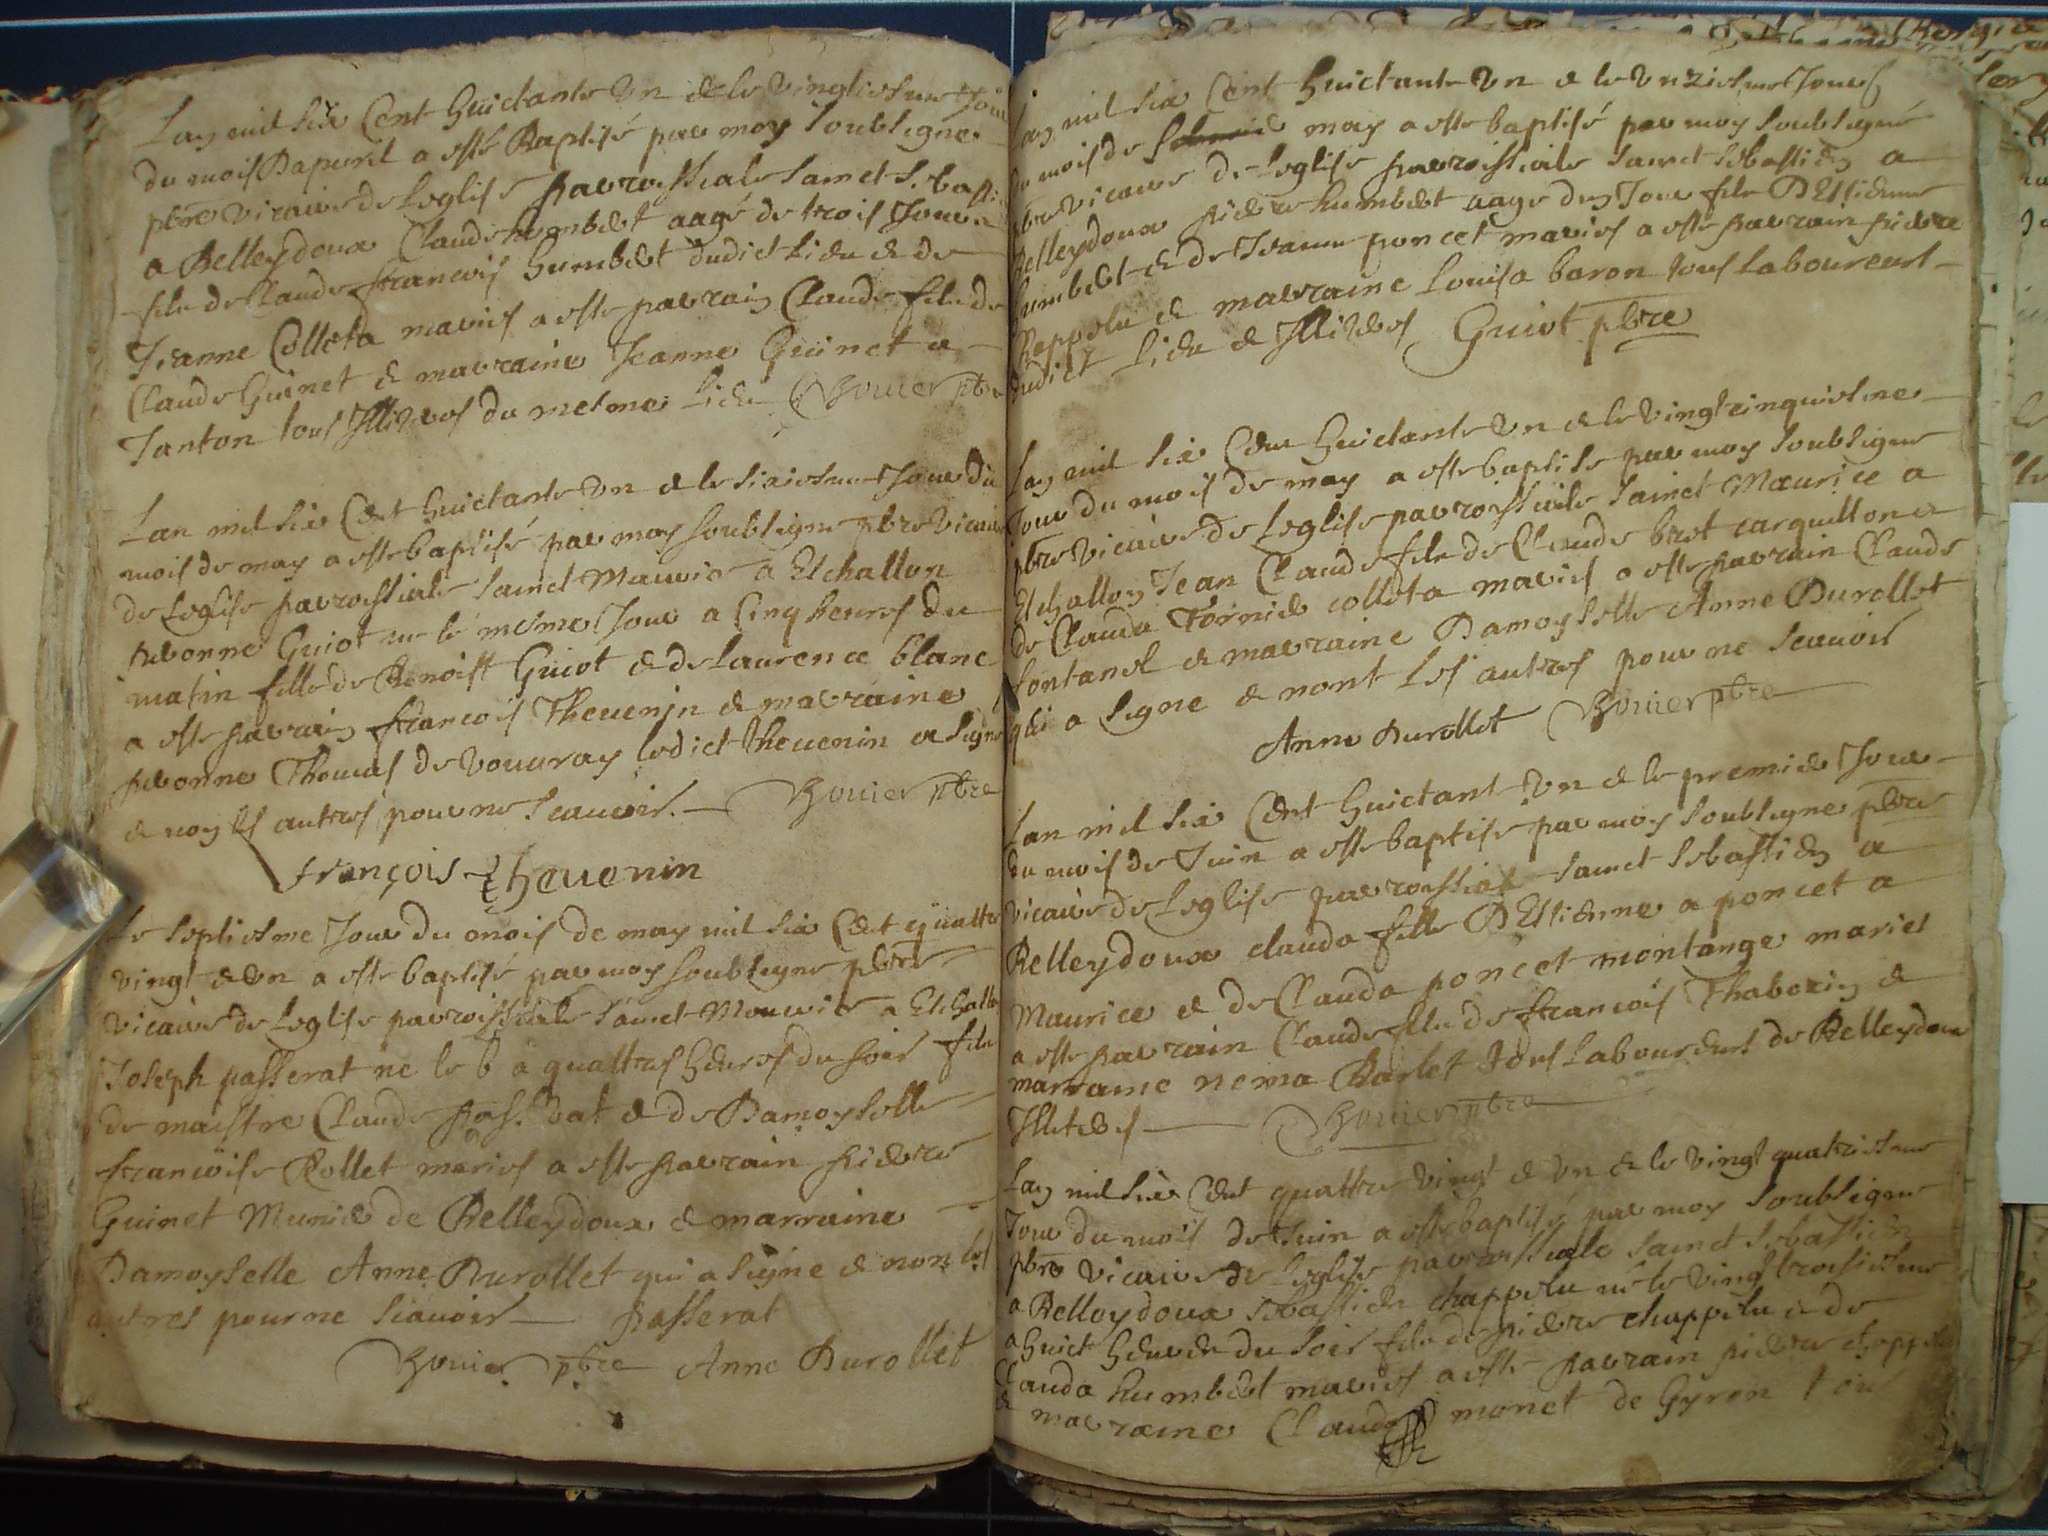 Lan mil six Cent huictante Un & le vingtiesme Jour
du mois Dapuril a esté Baptisé par moy soubsigne
pbre vicaire de Leglise parrossiale sainct Sebasti
a Belleydoux Claude humbert aagé de trois Jours
fils de Claude francois humbert dudict Lieu & de
Jeanne Colleta maries a este parrain Claude fils de
Claude Guinet & marraine Jeanne Guinet a
Tanton tous Illiteres du mesme Lieu Bouier pbre
Lan mil six Cent huictante Un & le sixiesme Jour du
mois de may a este baptisé par moy soubsigne pbre vicaire
de Leglise parrossiale sainct Maurice a Eschallon
Guiot nee le mesme Jour a Cinq heures du
matin fille de Benoist Guiot & de Laurence blanc
a este parrain francois Thevenin & marraine
Thomas de Vouvray ledict thevenin a signe
& non les autres pour ne scauoir. Bouier pbre
françois thevenin
Le septiesme Jour du mois de may mil six Cent quattre
vingt & un a este baptisé par moy soubsigne pbre
vicaire de Leglise parroissiale sainct Maurice a Eschallon
Joseph passerat ne le 6 a quattres heures du soir fils
de maistre Claude Passerat & de Damoyselle
francoise Rollet maries a este parrain pierre
Guinet Munier de Belleydoux & marraine
Damoyselle Anne Durollet qui a signe & non les
autres pour ne scauoir passerat
Bouier pbre Anne Durollet
Lan mil six Cent huictante Un & le unziesme Jour
du mois de may a este baptisé par moy soubsigné
pbre vicaire de Leglise parroissiale sainct Sebastien a
Belleydoux pierre humbert aage dun Jour fils DEstienne
humbert & de Jeanne poncet maries a este parrain pierre
& marraine Louisa baron tous Laboureurs
dudict Lieu & Illiteres Guiot pbre
Lan mil six Cent huictante Un & le vingtcinquiesme
Jour du mois de may a este baptise par moy soubsigne
pbre vicaire de Leglise parrossiale sainct Maurice a
Eschallon Jean Claude fils de Claude bret carquillon &
de Clauda Tornier colleta maries a este parrain Claude
fontanel & marraine Damoyselle Anne Durollet
qui a signe & nont les autres pour ne scauoir
Anne Durollet Bouier pbre
Lan mil six Cent huictant Un & le premier Jour
du mois de Juin a este baptise par moy soubsigne pbre
vicaire de Leglise parrossial sainct Sebastien a
Belleydoux clauda fille DEstienne a poncet a
Maurice & de Clauda poncet montange maries
a este parrain Claude fils de francois Thabozin &
marraine nema Barlet tous Laboureurs de Belleydoux
Illiteres Bouier pbre
Lan mil six Cent quattre vingt & un & le vingt quatriesme
Jour du mois de Juin a este baptisé par moy soubsigne
pbre vicaire de Leglise parrossiale sainct Sebastien
a Belleydoux sebastien chappelu né le vingt troisiesme
a huict heures du soir fils de pierre chappelu & de
Clauda humbert maries a este parrain pierre chappelu
& marraine Clauda monet de Gyron tous